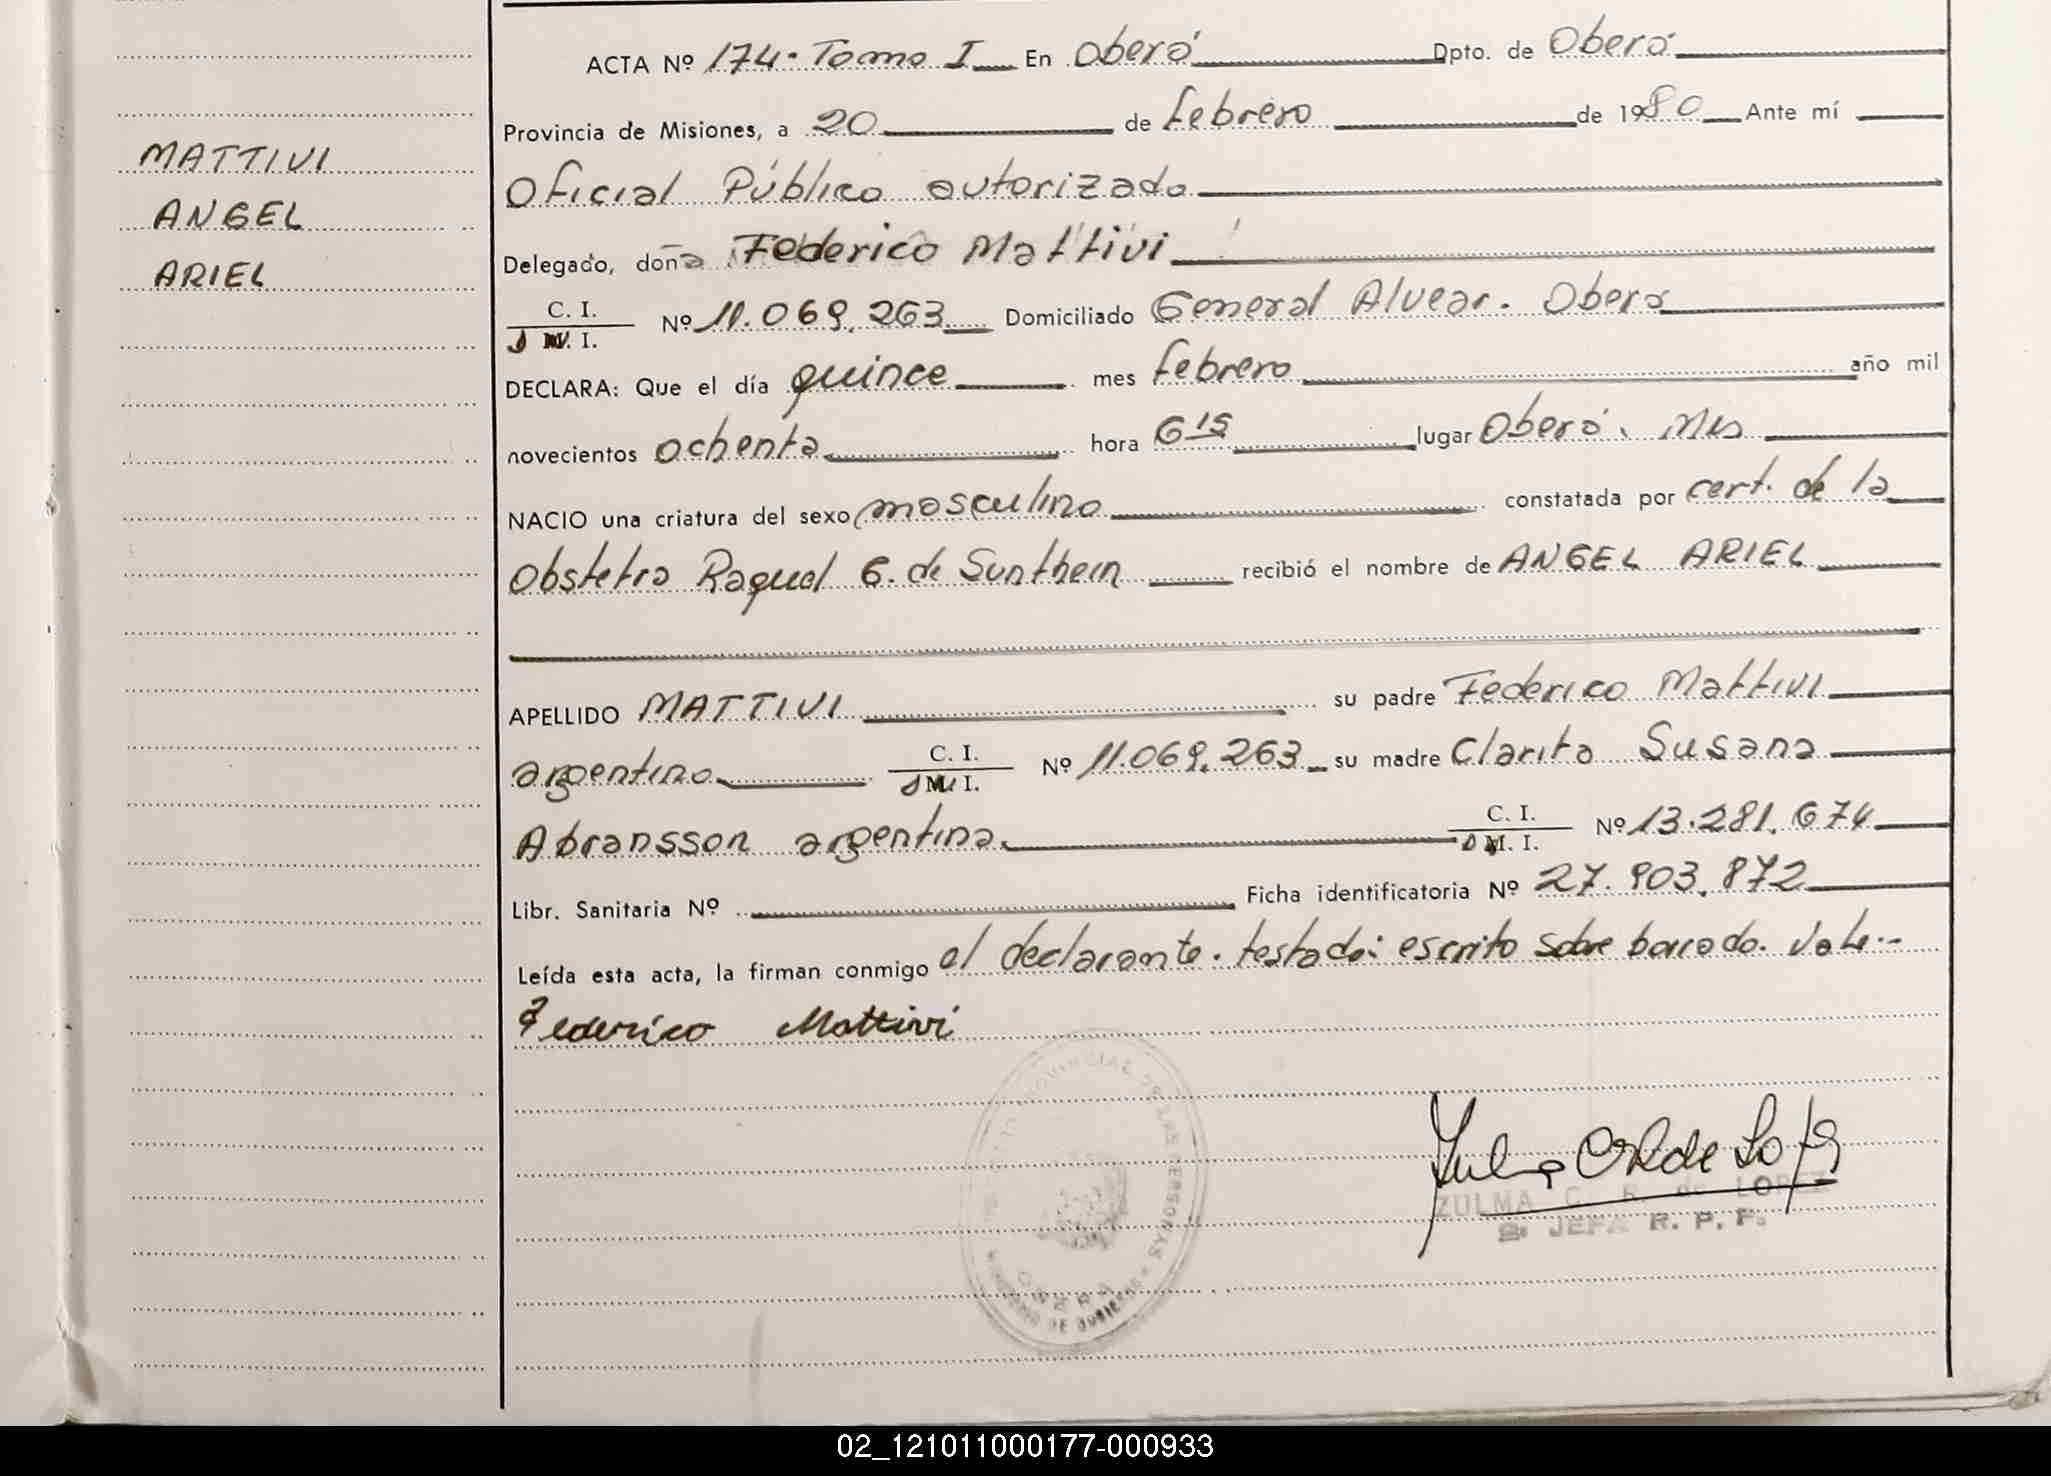 MATTIVI
ANGEL
ARIEL
ACTA Nº 174. Tomo I En Oberá Dpto. de Oberá
Provincia de Misiones, a 20 de febrero de 1980 Ante mí
Oficial Público autorizado
Delegado, don Federico Mattivi
C. I. M. I. Nº 11.069.263 Domiciliado General Alvear. Oberá
DECLARA: Que el día quince mes febrero año mil
novecientos ochenta hora 6 15 lugar Oberá. Mis
NACIO una criatura del sexo masculino constatada por cert. de la
Obstetra Raquel G. de Sunthein recibió el nombre de ANGEL ARIEL
APELLIDO MATTIVI su padre Federico Mattivi
argentino C. I. M. I. Nº 11.069.263 su madre Clarita Susana
Abransson argentina. C. I. M. I. Nº 13.281.674
Libr. Sanitaria Nº Ficha identificatoria Nº 27.903.872
Leída esta acta, la firman conmigo el declarante. testado: escrito sobre borrado. Vale.-
Federico Mattivi
PROVINCIAL DE LAS PERSONAS
OBERA
MINISTERIO DE GOBIERNO
ZULMA C. R. de LOPEZ
JEFA R. P. P.
02_121011000177-000933